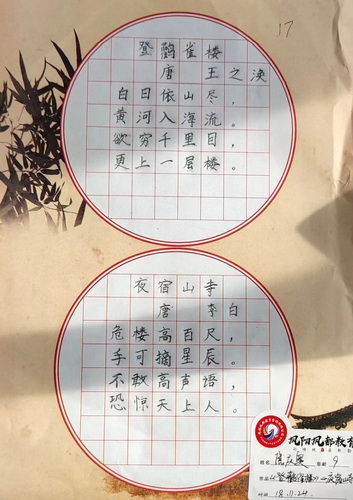 17
登鹳雀楼
唐 王之涣
白日依山尽，
黄河入海流。
欲穷千里目，
更上一层楼。
夜宿山寺
唐 李白
危楼高百尺，
手可摘星辰。
不敢高声语，
恐惊天上人。
凤阳凤都教育
姓名 年龄 9
作品
时间 18.11.24